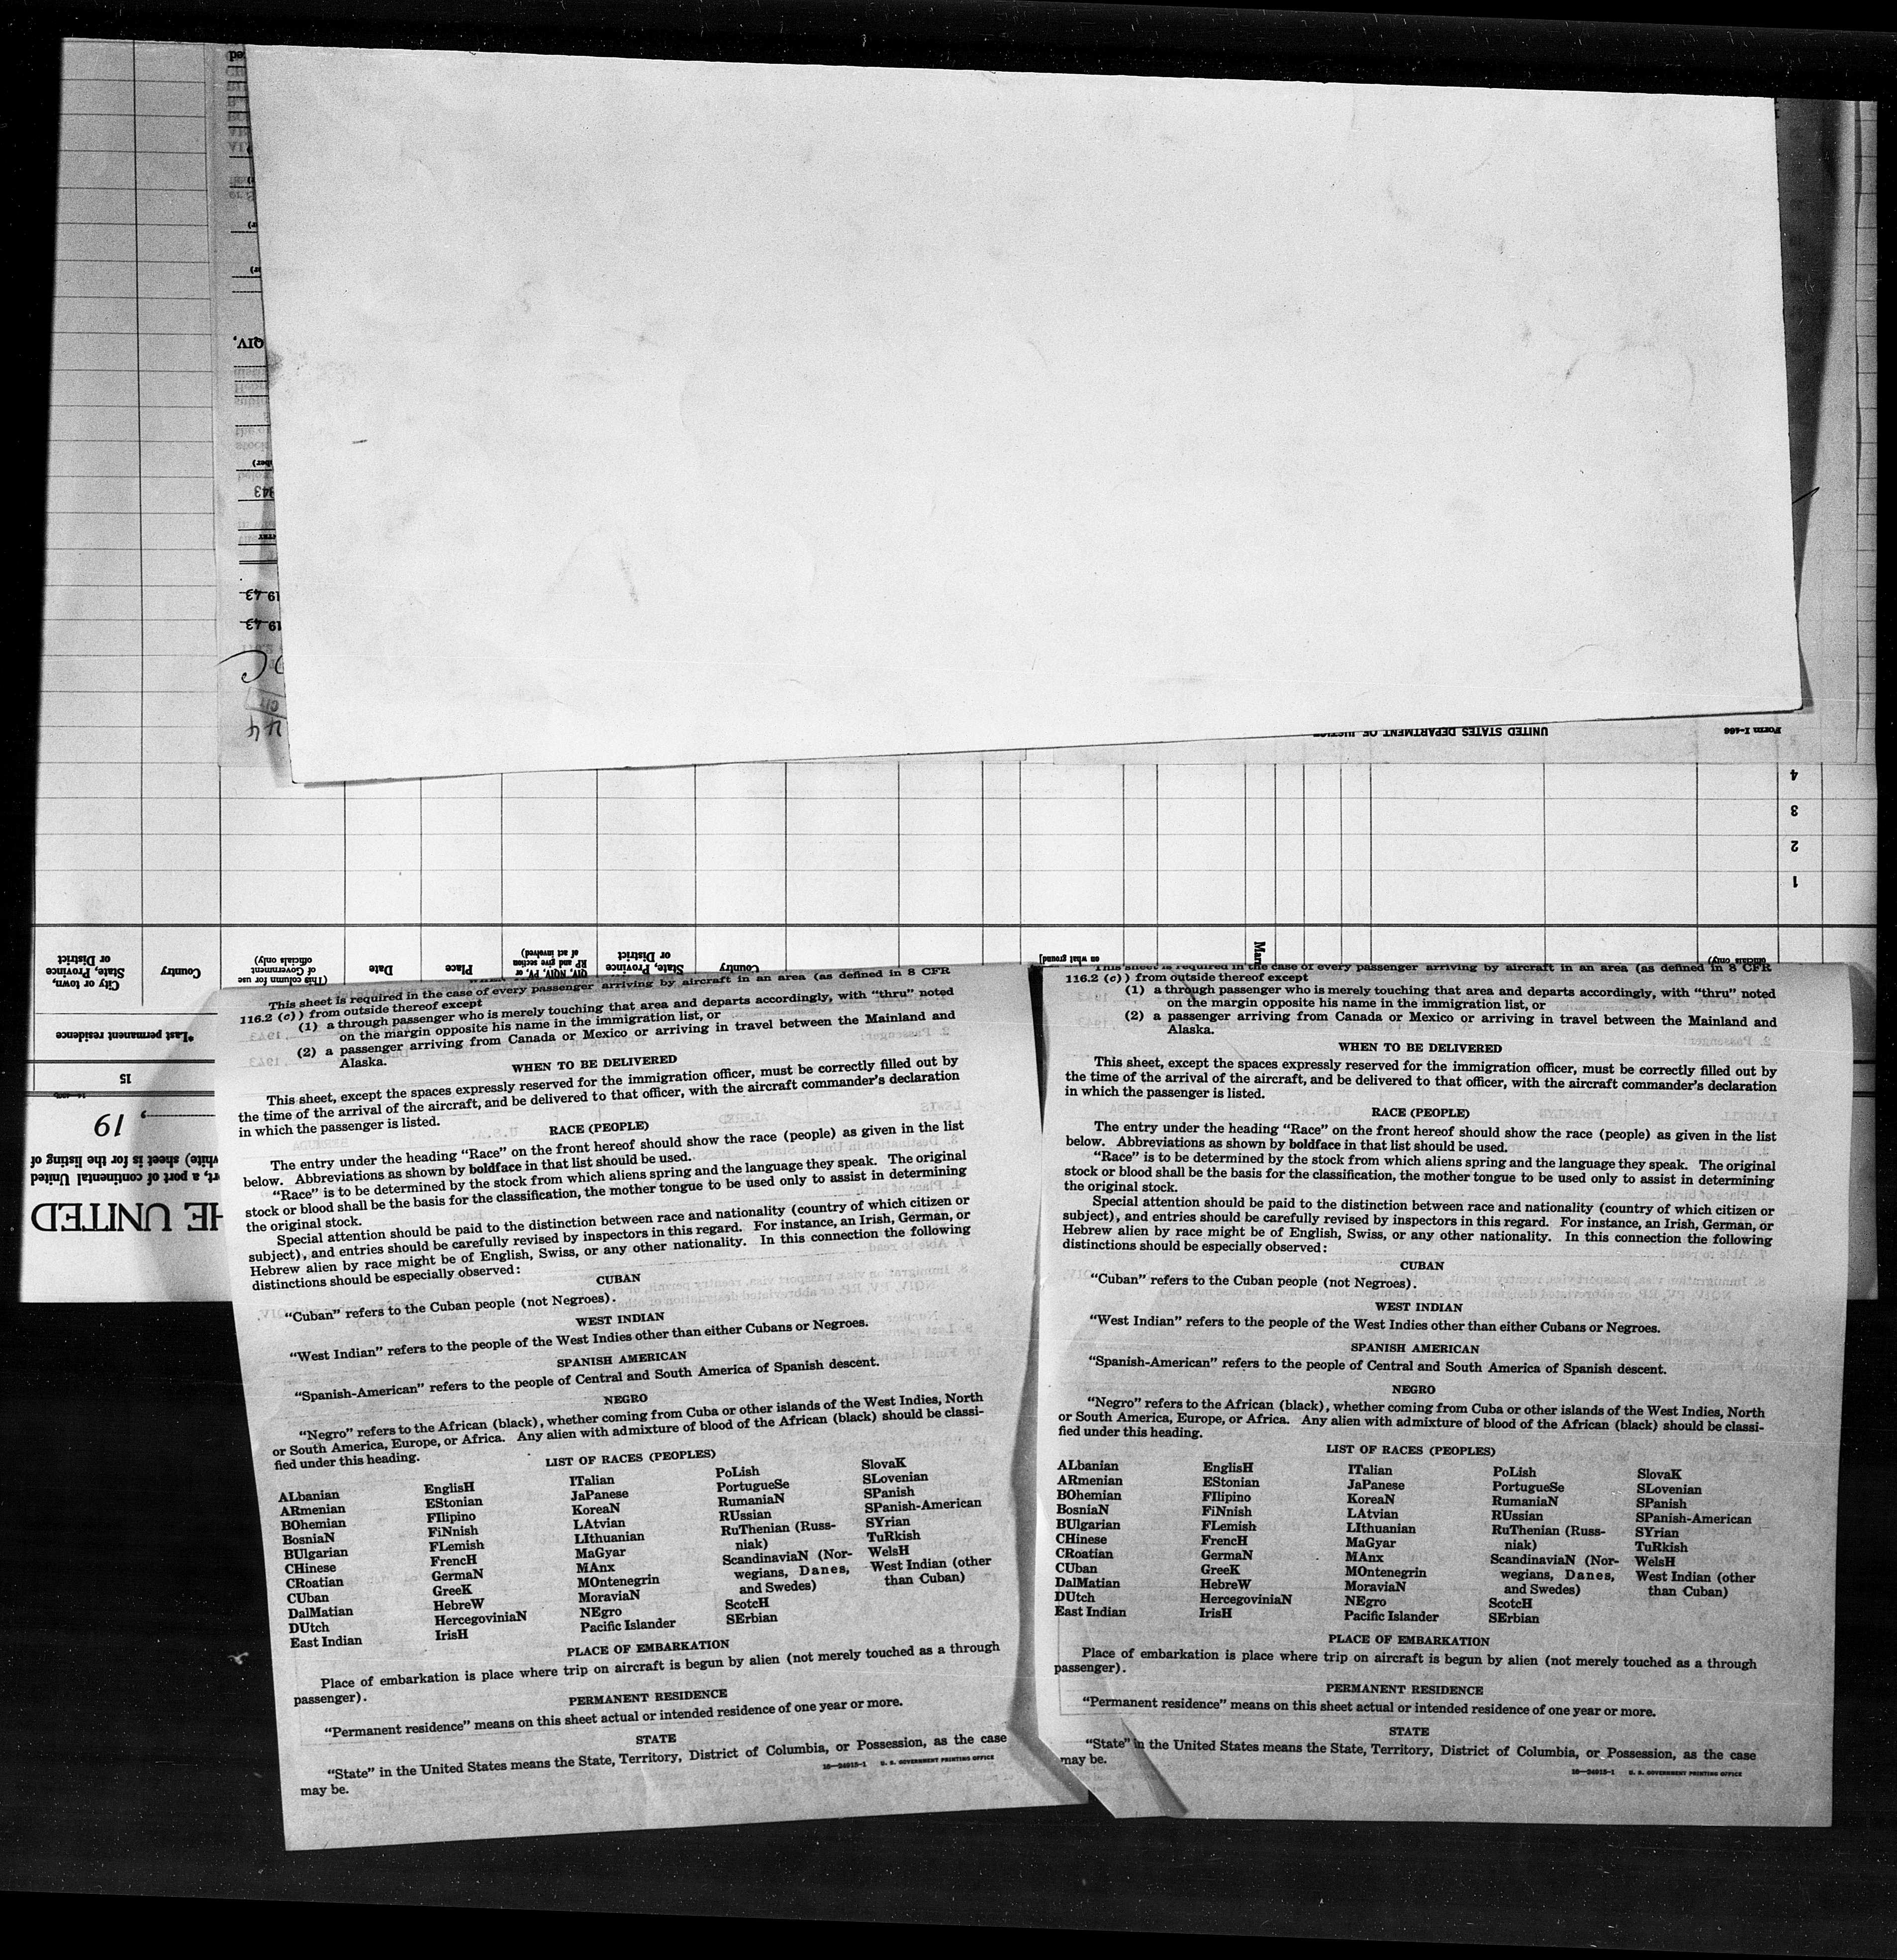 4
3
2
1
UNITED STATES DEPARTMENT OF JUSTICE
Form I-466
QIV,
19 43
19 43
City or town,
State, Province
or District
Country
(This column for use
of Government
officials only)
Date
Place
QIV, NQIV, PV, or
RP and give section
of act involved)
State, Province
or District
Country
on what ground]
officials only)
*Last permanent residence
15
, 19
white) sheet is for the listing of
rt, a port of continental United
HE UNITED
This sheet is required in the case of every passenger arriving by aircraft in an area (as defined in 8 CFR
116.2 (c)) from outside thereof except
(1) a through passenger who is merely touching that area and departs accordingly, with “thru” noted
on the margin opposite his name in the immigration list, or
(2) a passenger arriving from Canada or Mexico or arriving in travel between the Mainland and
Alaska.
WHEN TO BE DELIVERED
This sheet, except the spaces expressly reserved for the immigration officer, must be correctly filled out by
the time of the arrival of the aircraft, and be delivered to that officer, with the aircraft commander’s declaration
in which the passenger is listed.
RACE (PEOPLE)
The entry under the heading “Race” on the front hereof should show the race (people) as given in the list
below. Abbreviations as shown by boldface in that list should be used.
“Race” is to be determined by the stock from which aliens spring and the language they speak. The original
stock or blood shall be the basis for the classification, the mother tongue to be used only to assist in determining
the original stock.
Special attention should be paid to the distinction between race and nationality (country of which citizen or
subject), and entries should be carefully revised by inspectors in this regard. For instance, an Irish, German, or
Hebrew alien by race might be of English, Swiss, or any other nationality. In this connection the following
distinctions should be especially observed:
CUBAN
“Cuban” refers to the Cuban people (not Negroes).
WEST INDIAN
“West Indian” refers to the people of the West Indies other than either Cubans or Negroes.
SPANISH AMERICAN
“Spanish-American” refers to the people of Central and South America of Spanish descent.
NEGRO
“Negro” refers to the African (black), whether coming from Cuba or other islands of the West Indies, North
or South America, Europe, or Africa. Any alien with admixture of blood of the African (black) should be classi-
fied under this heading.
LIST OF RACES (PEOPLES)
ALbanian
ARmenian
BOhemian
BosniaN
BUlgarian
CHinese
CRoatian
CUban
DalMatian
DUtch
East Indian
EnglisH
EStonian
FIlipino
FiNnish
FLemish
FrencH
GermaN
GreeK
HebreW
HercegoviniaN
IrisH
ITalian
JaPanese
KoreaN
LAtvian
LIthuanian
MaGyar
MAnx
MOntenegrin
MoraviaN
NEgro
Pacific Islander
PoLish
PortugueSe
RumaniaN
RUssian
RuThenian (Russ-
niak)
ScandinaviaN (Nor-
wegians, Danes,
and Swedes)
ScotcH
SErbian
SlovaK
SLovenian
SPanish
SPanish-American
SYrian
TuRkish
WelsH
West Indian (other
than Cuban)
PLACE OF EMBARKATION
Place of embarkation is place where trip on aircraft is begun by alien (not merely touched as a through
passenger).
PERMANENT RESIDENCE
“Permanent residence” means on this sheet actual or intended residence of one year or more.
STATE
“State” in the United States means the State, Territory, District of Columbia, or Possession, as the case
may be.
16—34915-1 U. S. GOVERNMENT PRINTING OFFICE
This sheet is required in the case of every passenger arriving by aircraft in an area (as defined in 8 CFR
116.2 (c)) from outside thereof except
(1) a through passenger who is merely touching that area and departs accordingly, with “thru” noted
on the margin opposite his name in the immigration list, or
(2) a passenger arriving from Canada or Mexico or arriving in travel between the Mainland and
Alaska.
WHEN TO BE DELIVERED
This sheet, except the spaces expressly reserved for the immigration officer, must be correctly filled out by
the time of the arrival of the aircraft, and be delivered to that officer, with the aircraft commander’s declaration
in which the passenger is listed.
RACE (PEOPLE)
The entry under the heading “Race” on the front hereof should show the race (people) as given in the list
below. Abbreviations as shown by boldface in that list should be used.
“Race” is to be determined by the stock from which aliens spring and the language they speak. The original
stock or blood shall be the basis for the classification, the mother tongue to be used only to assist in determining
the original stock.
Special attention should be paid to the distinction between race and nationality (country of which citizen or
subject), and entries should be carefully revised by inspectors in this regard. For instance, an Irish, German, or
Hebrew alien by race might be of English, Swiss, or any other nationality. In this connection the following
distinctions should be especially observed:
CUBAN
“Cuban” refers to the Cuban people (not Negroes).
WEST INDIAN
“West Indian” refers to the people of the West Indies other than either Cubans or Negroes.
SPANISH AMERICAN
“Spanish-American” refers to the people of Central and South America of Spanish descent.
NEGRO
“Negro” refers to the African (black), whether coming from Cuba or other islands of the West Indies, North
or South America, Europe, or Africa. Any alien with admixture of blood of the African (black) should be classi-
fied under this heading.
LIST OF RACES (PEOPLES)
ALbanian
ARmenian
BOhemian
BosniaN
BUlgarian
CHinese
CRoatian
CUban
DalMatian
DUtch
East Indian
EnglisH
EStonian
FIlipino
FiNnish
FLemish
FrencH
GermaN
GreeK
HebreW
HercegoviniaN
IrisH
ITalian
JaPanese
KoreaN
LAtvian
LIthuanian
MaGyar
MAnx
MOntenegrin
MoraviaN
NEgro
Pacific Islander
PoLish
PortugueSe
RumaniaN
RUssian
RuThenian (Russ-
niak)
ScandinaviaN (Nor-
wegians, Danes,
and Swedes)
ScotcH
SErbian
SlovaK
SLovenian
SPanish
SPanish-American
SYrian
TuRkish
WelsH
West Indian (other
than Cuban)
PLACE OF EMBARKATION
Place of embarkation is place where trip on aircraft is begun by alien (not merely touched as a through
passenger).
PERMANENT RESIDENCE
“Permanent residence” means on this sheet actual or intended residence of one year or more.
STATE
“State” in the United States means the State, Territory, District of Columbia, or Possession, as the case
may be.
16—34915-1 U. S. GOVERNMENT PRINTING OFFICE